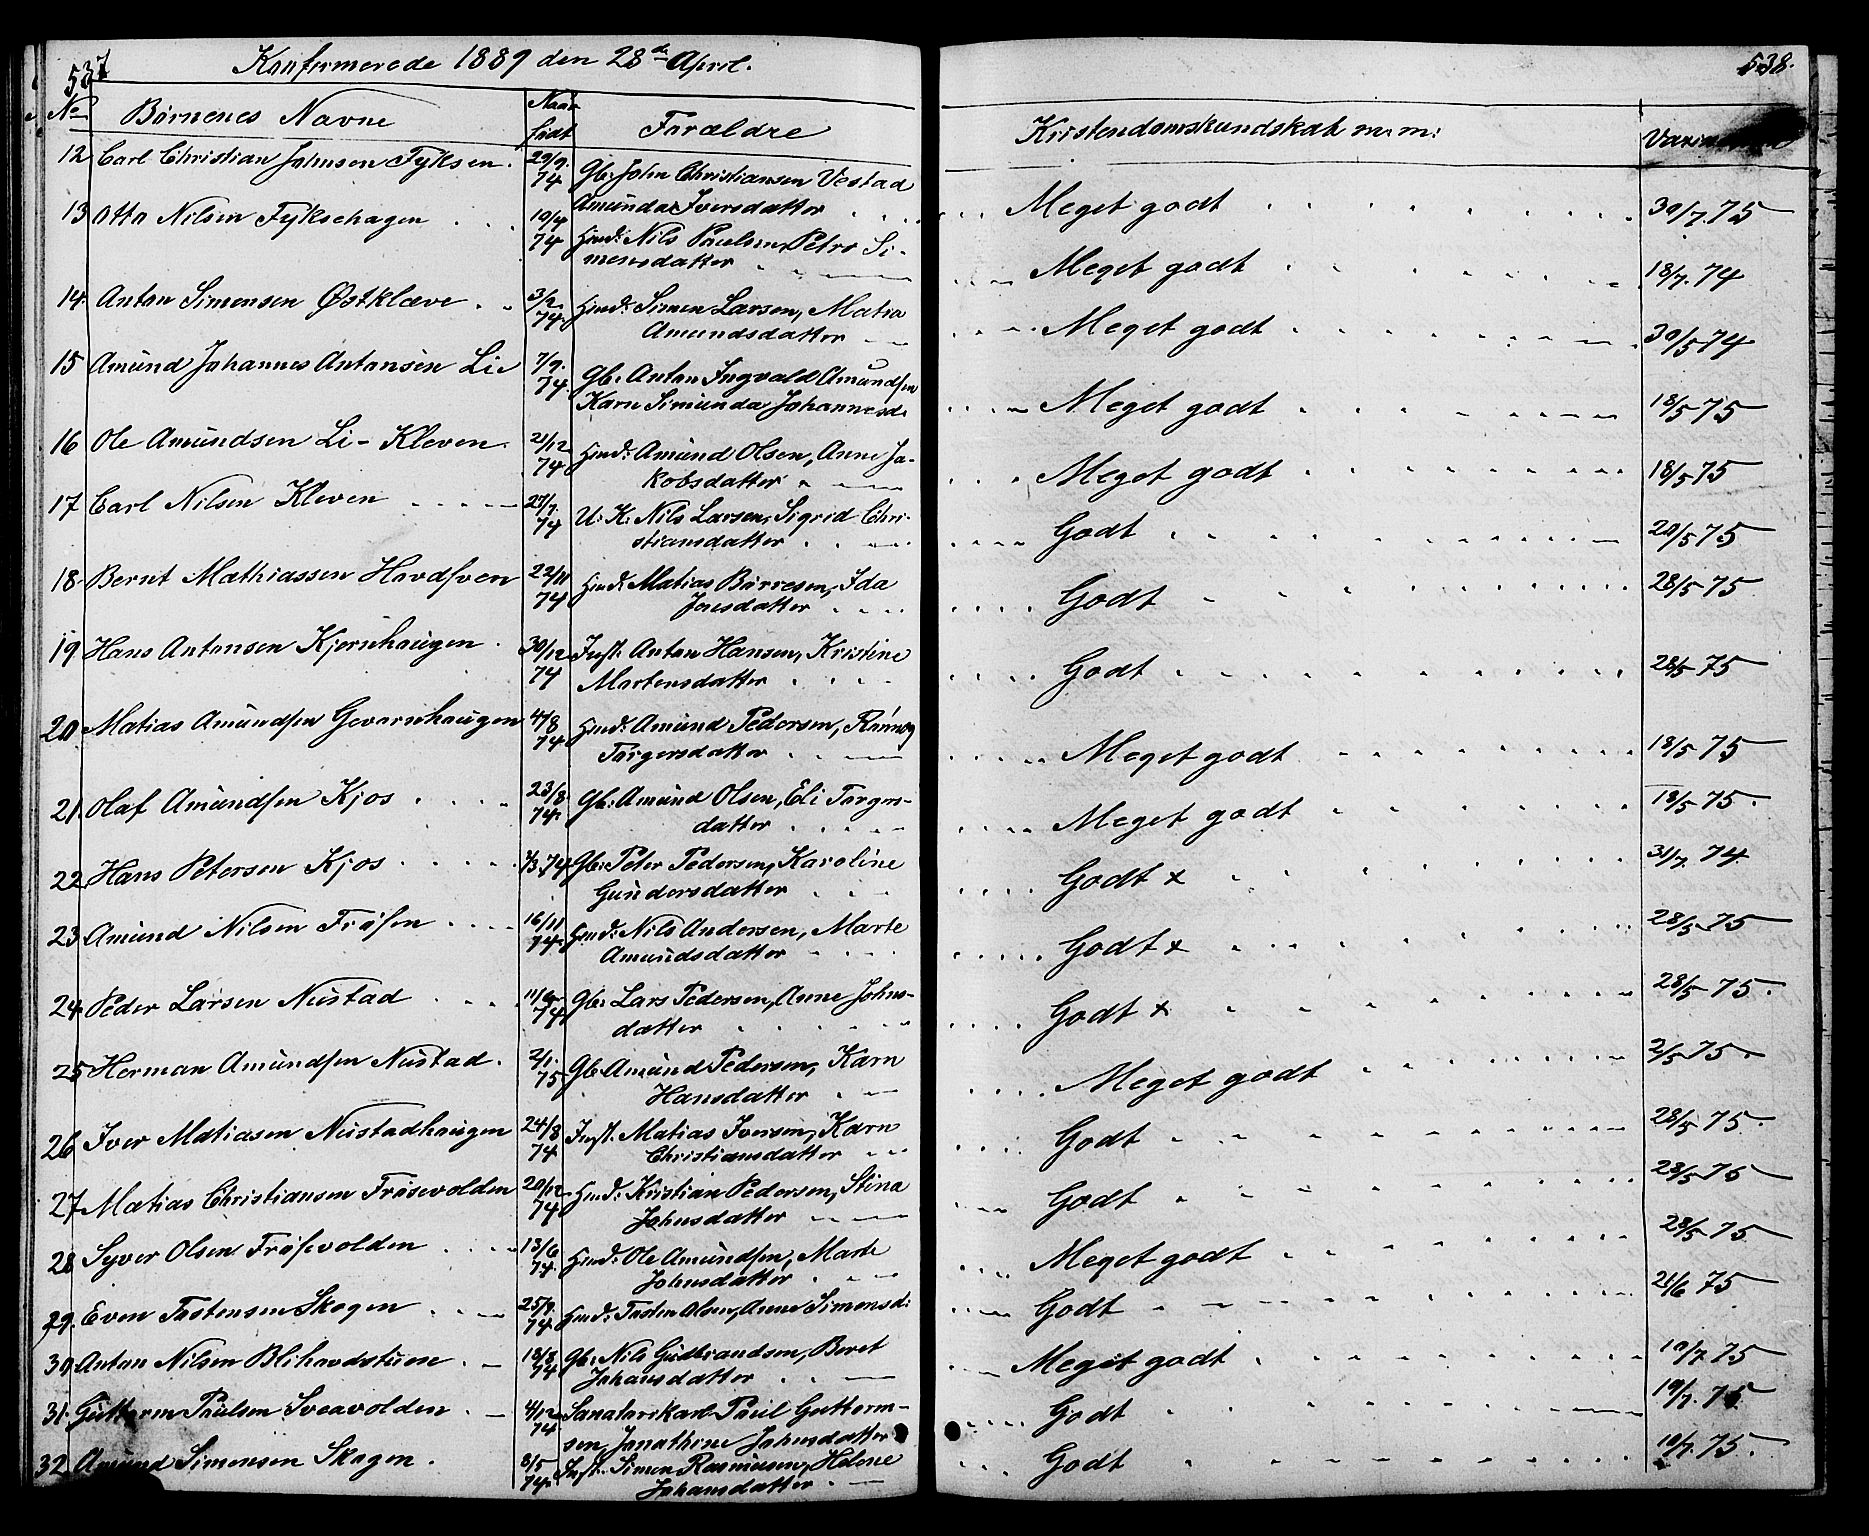 537
Konfirmerede 1889 den 28de April.
No Børnenes Navne Naar født Forældre
12 Carl Christian Johnsen Fyksen. 29/9. 74 Gb: John Christiansen Vestad
Amunda Iversdatter
13 Otto Nilsen Fyksehagen 10/4 74 Hmd: Nils Paulsen, Petro Si-
mensdatter
14. Anton Simensen Østklæve 3/2 74. Hmd: Simen Larsen, Matia
Amundsdatter
15 Amund Johannes Antonsen Lie 7/9. 74. Gb: Anton Ingvald Amundsen
Karn Simunda Johannesd.
16 Ole Amundsen Li-Kleven. 21/12 74 Hmd: Amund Olsen, Anne Ja-
kobsdatter
17 Carl Nilsen Kleven 27/7. 74 U. K. Nils Larsen, Sigrid Chri-
stiansdatter
18. Bernt Mathiassen Hovdsven 22/11 74 Hmd: Matias Børresen, Ida
Jensdatter
19. Hans Antonsen Kjernhaugen 30/12 74 Inst. Anton Hansen, Kristine
Martensdatter
20. Matias Amundsen Gevarnhaugen 4/8 74 Hmd: Amund Pedersen, Rønnog
Torgersdatter
21. Olaf Amundsen Kjos 23/8 74. Gb: Amund Olsen, Eli Torgers-
datter
22. Hans Petersen Kjos /3 74 Gb: Peter Pedersen, Karoline
Gundersdatter
23. Amund Nilsen Frøsen 16/11 74. Hmd: Nils Andersen, Marte
Amundsdatter
24. Peder Larsen Nustad 11/ 74. Gb: Lars Pedersen, Anne Johns-
datter
25. Herman Amundsen Nustad. 2/1. 75 Gb: Amund Pedersen, Karn
Hansdatter
26 Iver Matiasen Nustadhaugen 24/8 74 Inst. Matias Iversen, Karn
Christiansdatter
27. Matias Christiansen Frøsevolden 20/12 74 Hmd: Kristian Pedersen, Stina
Johnsdatter
28. Syver Olsen Frøsevolden 13/6 74. Hmd: Ole Amundsen, Marte
Johnsdatter
29. Even Tostensen Skogen 25/9. 74. Hmd: Tosten Olsen, Anne Simensd:
30. Anton Nilsen Blihovdstuene 18/8 74 Gb: Nils Gudbrandsen, Beret
Johansdatter
31. Guttorm Paulsen Sveavolden 4/12 74 Sanatorskarl Paul Guttorm-
sen, Jonathine Johnsdatter
32. Amund Simensen Skogen. 8/5 74. Inst. Simen Rasmusen, Helene
Johansdatter
538.
Kristendomskundskab m: m:
Meget godt 30/7. 75
Meget godt 18/7. 74
Meget godt 30/5 74
Meget godt 18/5 75
Meget godt 18/5 75
Godt 20/5 75
Godt 28/5 75
Godt 28/5 75
Meget godt 18/5 75
Meget godt 18/5 75.
Godt x 31/7. 74.
Godt x 28/5 75
Godt x 28/5 75.
Meget godt 2/5 75.
Godt 28/5 75.
Godt 28/5 75
Meget godt 28/5 75
Godt 21/6 75
Meget godt 10/7. 75
Godt 19/7. 75
Godt 10/7. 75.